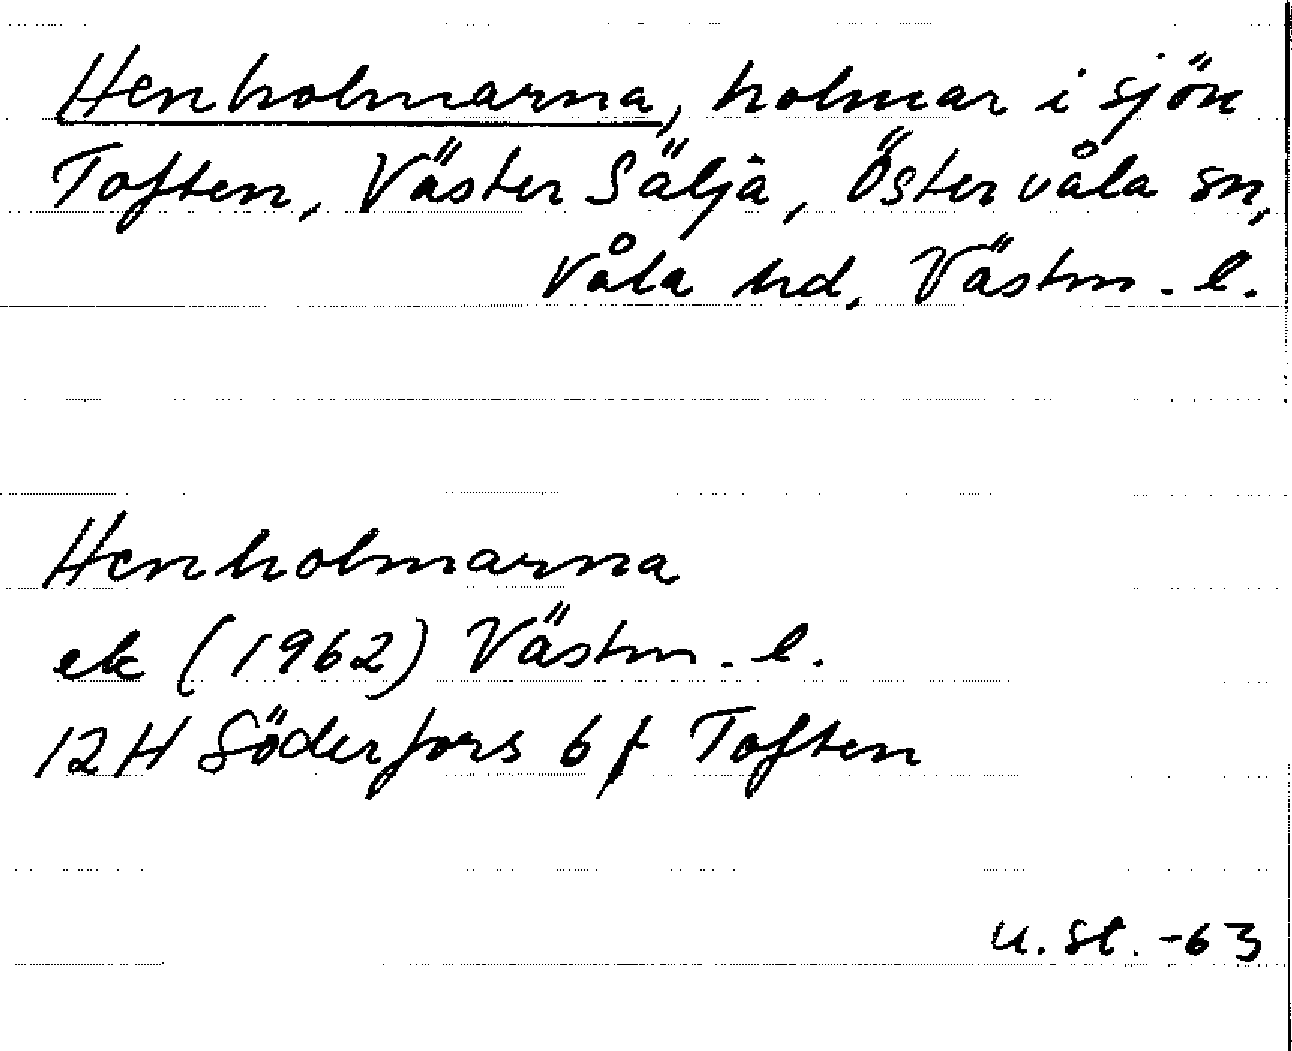 Henholmarna, holmar i sjön
Toften, Väster Sälja, Östervåla sn,
Våla hd, Västm. l.
Henholmarna
ek (1962) Västm. l.
12H Söderfors 6f Toften
u. st. -63